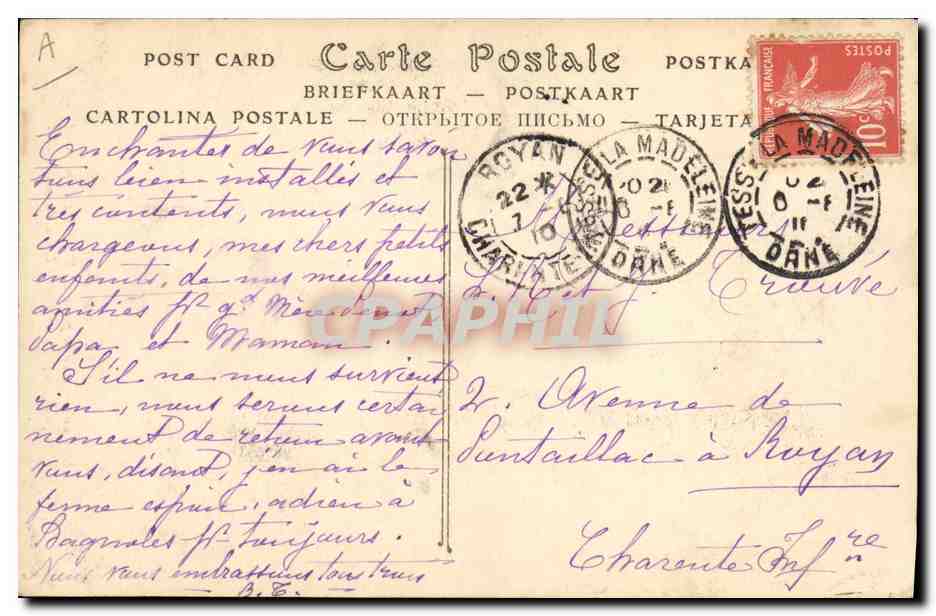 A
POST CARD Carte Postale POSTKA
BRIEFKAART — POSTKAART
CARTOLINA POSTALE — ОТКРЫТОЕ ПИСЬМО — TARJETA
POSTES
RÉPUBLIQUE FRANÇAISE
10c
ROYAN
22 *
7
10
CHARENTE
TESSÉ LA MADELEINE
ORNE
TESSÉ LA MADELEINE
ORNE
Enchantés de vous savoir
tous bien installés et
très contents, nous vous
chargeons, mes chers petits
enfants, de nos meilleures
amitiés pr gd Mère
papa et Maman.
S'il ne nous survient
rien, nous serons certai
nement de retour avant
vous, disant, j'en ai le
ferme espoir, adieu à
Bagnoles pr toujours.
Nous vous embrassons tous trois
B. T.
Messieurs
et J. Trouvé
2. Avenue de
Pontaillac à Royan
Charente Infre
CPAPHIL